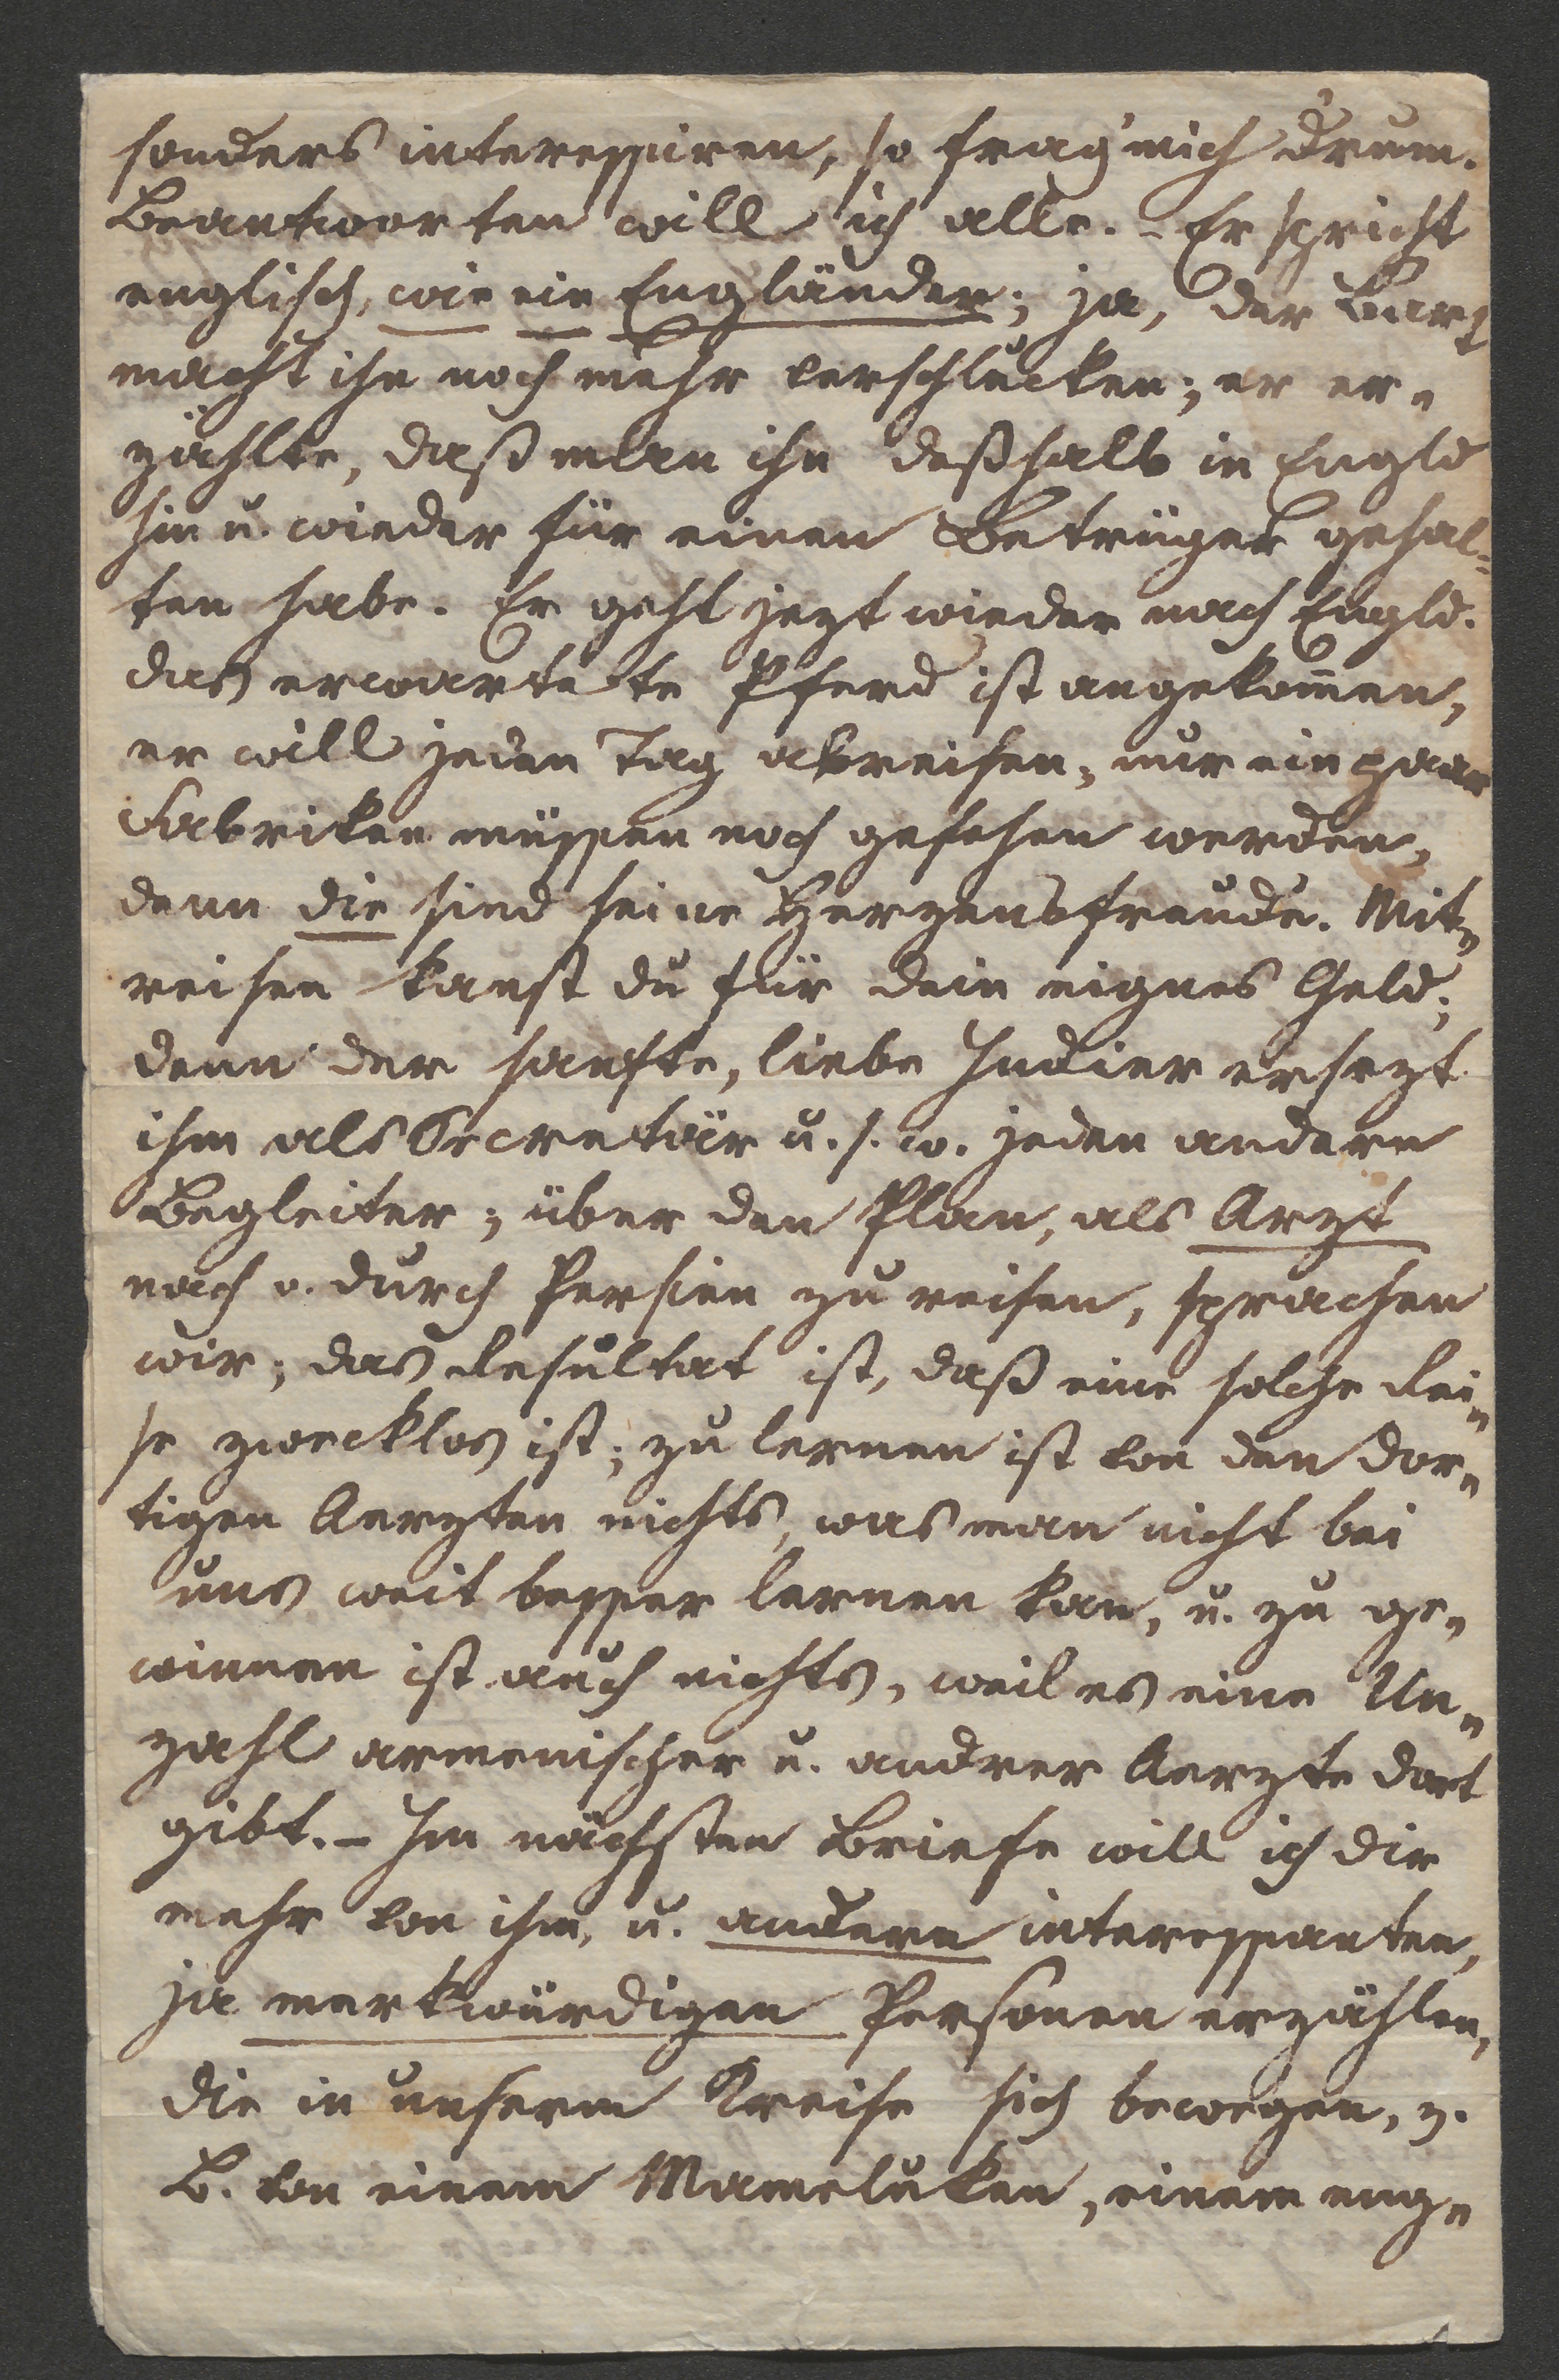 sonders interessiren, so frag' mich drum.
Beantworten will ich alle. - Er spricht
englisch, wie ein Engländer; ja, der Bart
macht ihn noch mehr verschlucken; er er-
zählte, daß man ihn deßhalb in Engld
hin u. wieder für einen Betrüger gehal-
ten habe. Er geht jezt wieder nach Engld.
das erwartete Pferd ist angekom̅en,
er will jeden Tag abreisen, nur ein paar
Fabriken müssen noch gesehen werden,
denn die sind seine Herzensfreude. Mit-
reisen kanst du für dein eignes Geld;
denn der sanfte, liebe Indier ersezt
ihm als Secretär u. s. w. jeden andern
Begleiter; über den Plan, als Arzt
nach u. durch Persien zu reisen, sprachen
wir; das Resultat ist, daß eine solche Rei-
se zwecklos ist; zu lernen ist von den dor-
tigen Aerzten nichts, was man nicht bei
uns weit besser lernen kan, u. zu ge-
winnen ist auch nichts, weil es eine Un-
zahl armenischer u. andrer Aerzte dort
gibt. - Im nächsten Briefe will ich dir
mehr von ihm, u. andern interessanten,
ja merkwürdigen Personen erzählen,
die in unserm Kreise sich bewegen, z.
B. von einem Mameluken, einem eng-